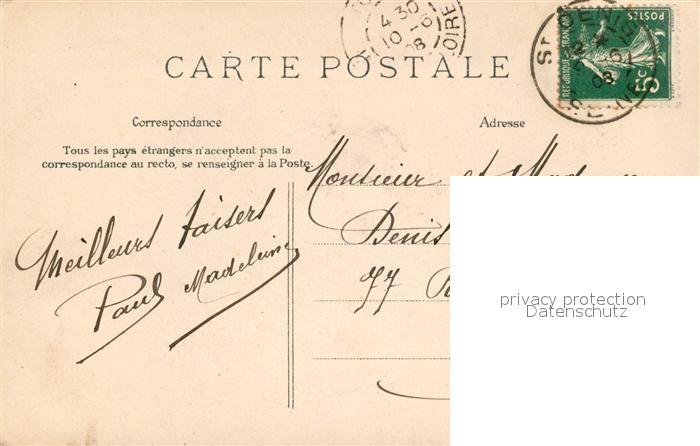 4 30
10-6
08
OIRE
CARTE POSTALE
St DENIS
6
08
SEINE
REPUBLIQUE FRANÇAISE
POSTES
5c
Correspondance
Adresse
Tous les pays étrangers n'acceptent pas la
correspondance au recto, se renseigner à la Poste.
Monsieur et Mad
Denis
77 R
Meilleurs baisers
Paul Madeleine
privacy protection
Datenschutz